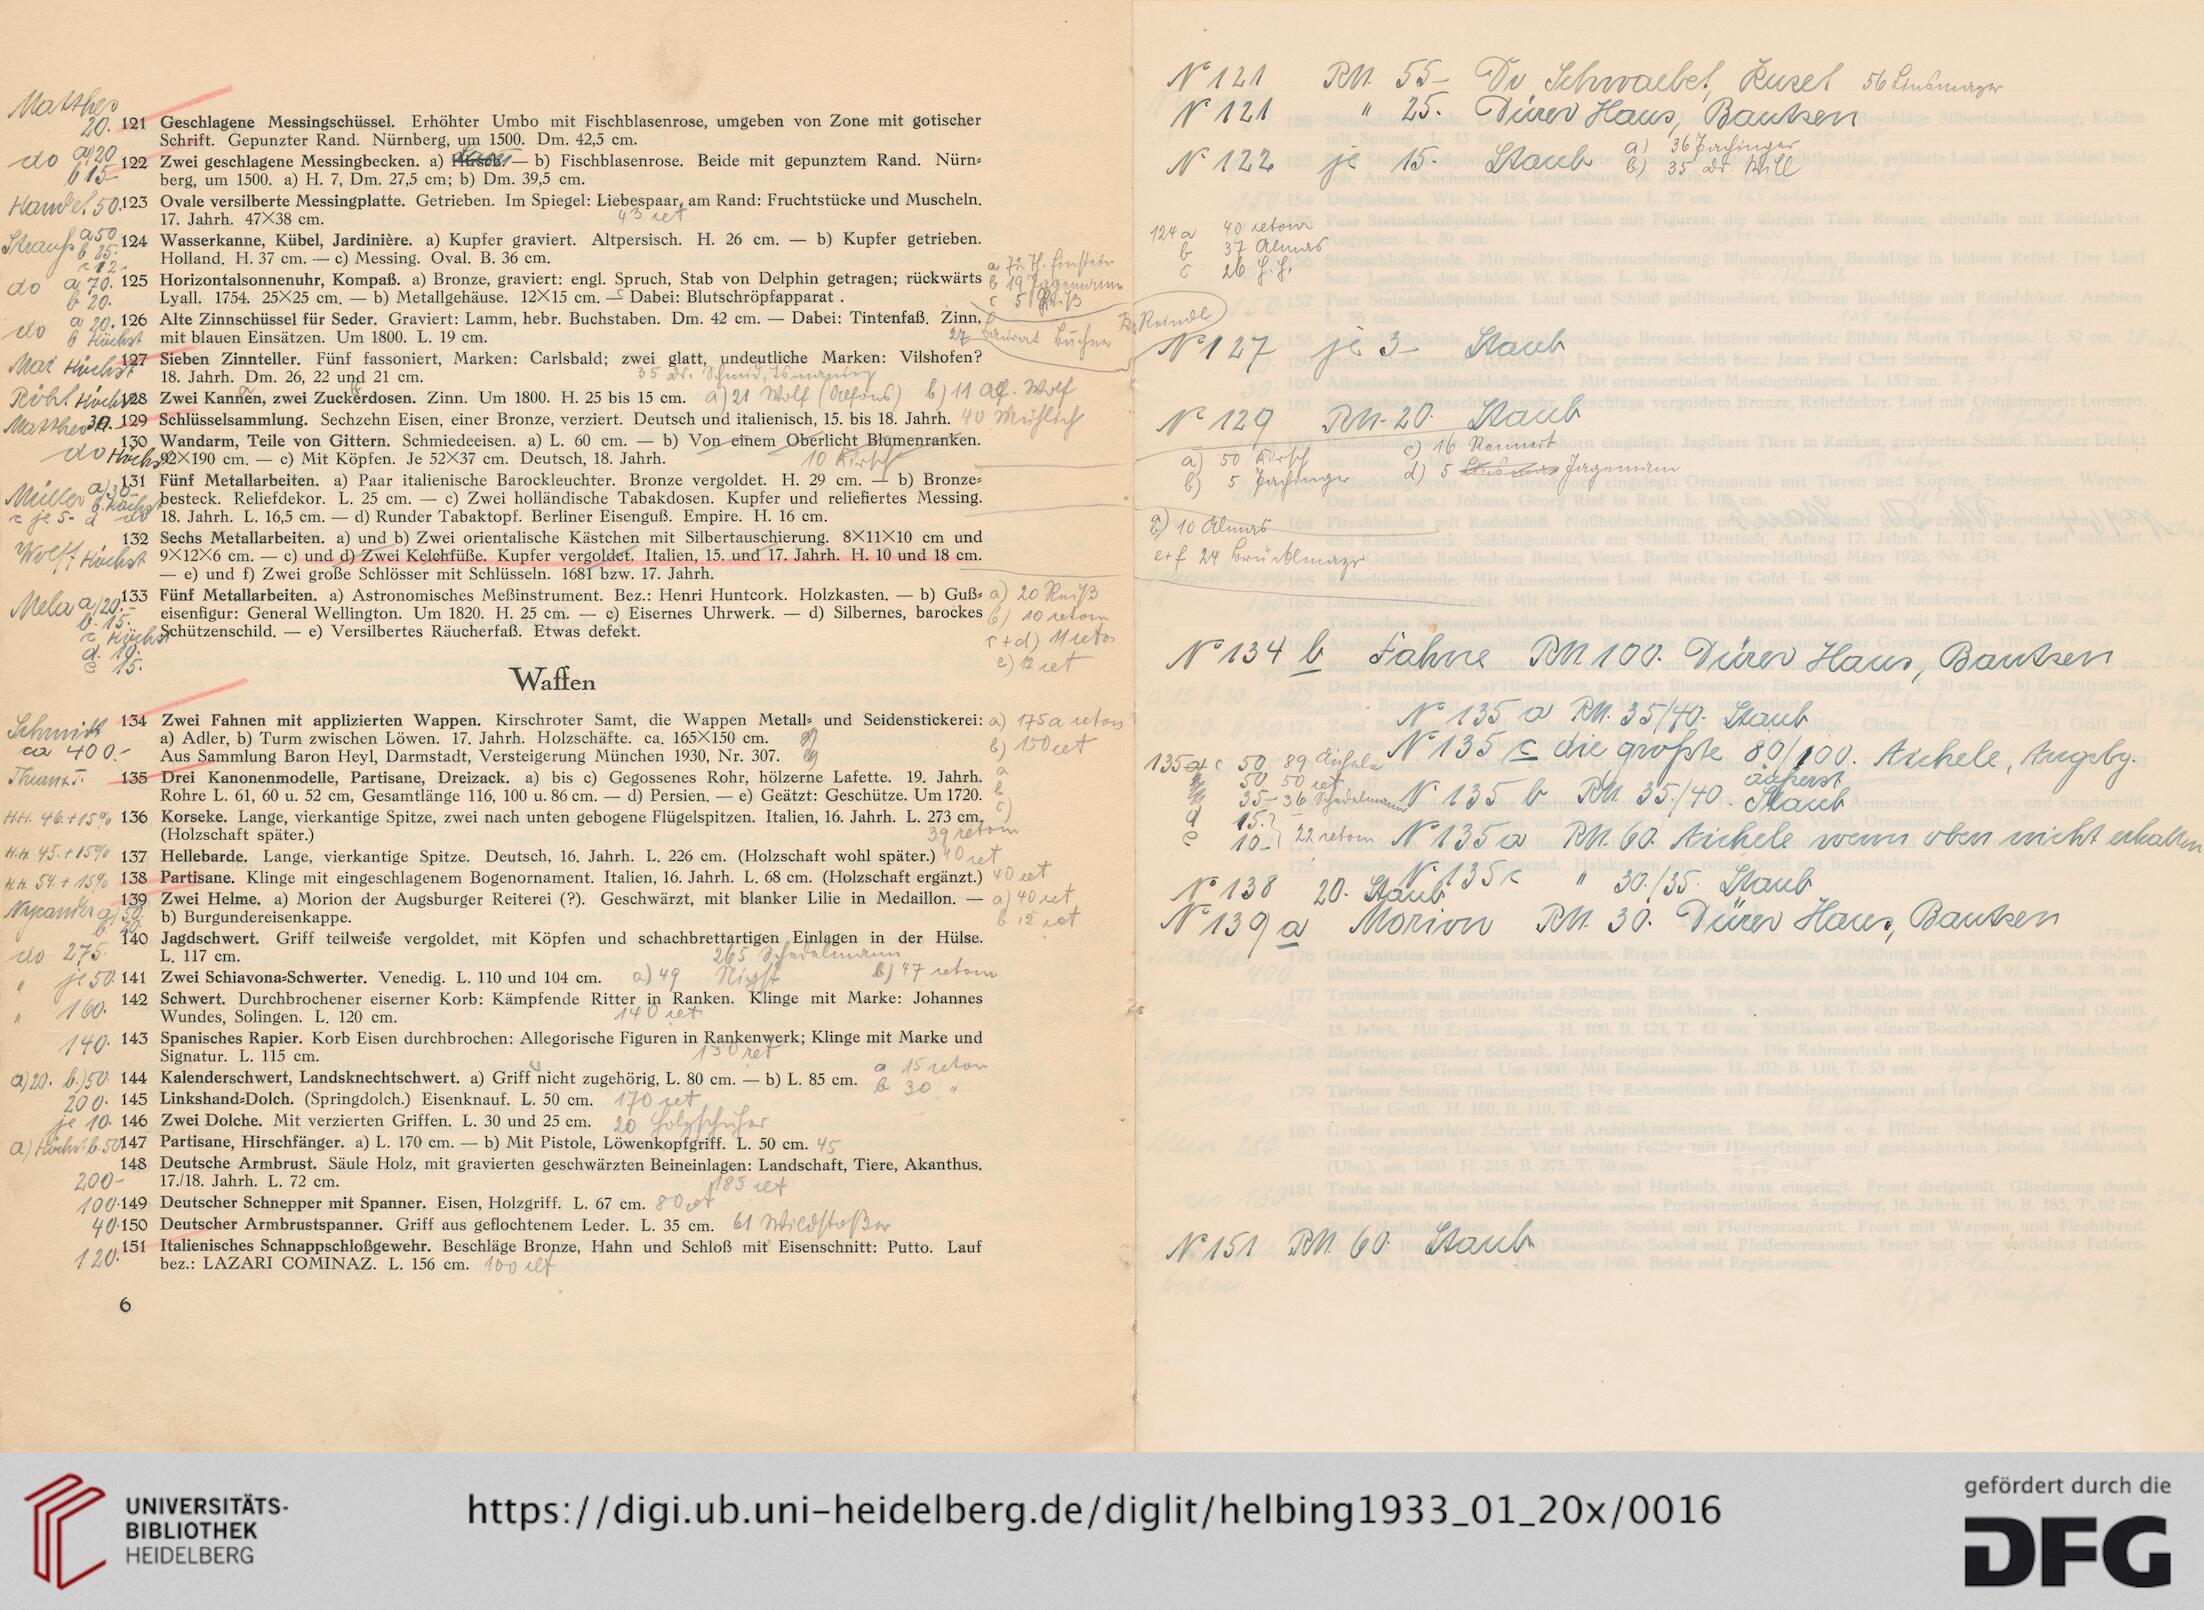 Matthes
20. 121 Geschlagene Messingschüssel. Erhöhter Umbo mit Fischblasenrose, umgeben von Zone mit gotischer
Schrift. Gepunzter Rand. Nürnberg, um 1500. Dm. 42,5 cm.
do a) 20 b 15 122 Zwei geschlagene Messingbecken. a) — b) Fischblasenrose. Beide mit gepunztem Rand. Nürn-
berg, um 1500. a) H. 7, Dm. 27,5 cm; b) Dm. 39,5 cm.
50. 123 Ovale versilberte Messingplatte. Getrieben. Im Spiegel: Liebespaar, am Rand: Fruchtstücke und Muscheln.
17. Jahrh. 47×38 cm. 43 ret
Strauß a 50 124 Wasserkanne, Kübel, Jardinière. a) Kupfer graviert. Altpersisch. H. 26 cm. — b) Kupfer getrieben.
Holland. H. 37 cm. — c) Messing. Oval. B. 36 cm.
do a 70. 125 Horizontalsonnenuhr, Kompaß. a) Bronze, graviert: engl. Spruch, Stab von Delphin getragen; rückwärts
b 20. Lyall. 1754. 25×25 cm. — b) Metallgehäuse. 12×15 cm. — c Dabei: Blutschröpfapparat .
do a 20. 126 Alte Zinnschüssel für Seder. Graviert: Lamm, hebr. Buchstaben. Dm. 42 cm. — Dabei: Tintenfaß. Zinn,
b Höchst mit blauen Einsätzen. Um 1800. L. 19 cm.
Höchst 127 Sieben Zinnteller. Fünf fassoniert, Marken: Carlsbald; zwei glatt, undeutliche Marken: Vilshofen?
18. Jahrh. Dm. 26, 22 und 21 cm.
Höchst 128 Zwei Kannen, zwei Zuckerdosen. Zinn. Um 1800. H. 25 bis 15 cm. a) 21 Wolf (Alfons) b) 11 Alf. Wolf
Matthes 30. 129 Schlüsselsammlung. Sechzehn Eisen, einer Bronze, verziert. Deutsch und italienisch, 15. bis 18. Jahrh. 40 Mühlich
130 Wandarm, Teile von Gittern. Schmiedeeisen. a) L. 60 cm. — b) Von einem Oberlicht Blumenranken.
do Höchst 92×190 cm. — c) Mit Köpfen. Je 52×37 cm. Deutsch, 18. Jahrh. 10 Kirsch
Müller a) 30.- 131 Fünf Metallarbeiten. a) Paar italienische Barockleuchter. Bronze vergoldet. H. 29 cm. — b) Bronze-
b. Höchst besteck. Reliefdekor. L. 25 cm. — c) Zwei holländische Tabakdosen. Kupfer und reliefiertes Messing.
c je 5- d do 18. Jahrh. L. 16,5 cm. — d) Runder Tabaktopf. Berliner Eisenguß. Empire. H. 16 cm.
132 Sechs Metallarbeiten. a) und b) Zwei orientalische Kästchen mit Silbertauschierung. 8×11×10 cm und
Wolff Höchst 9×12×6 cm. — c) und d) Zwei Kelchfüße. Kupfer vergoldet. Italien, 15. und 17. Jahrh. H. 10 und 18 cm.
— e) und f) Zwei große Schlösser mit Schlüsseln. 1681 bzw. 17. Jahrh.
Mela a) 20.- 133 Fünf Metallarbeiten. a) Astronomisches Meßinstrument. Bez.: Henri Huntcork. Holzkasten. — b) Guß- a) 20 Reiß
b. 15. eisenfigur: General Wellington. Um 1820. H. 25 cm. — c) Eisernes Uhrwerk. — d) Silbernes, barockes b) 10 retour
c Höchst Schützenschild. — e) Versilbertes Räucherfaß. Etwas defekt. c+d) 11 retour
d. 10.
e 15. e) 12 ret
Waffen
Schmidt 134 Zwei Fahnen mit applizierten Wappen. Kirschroter Samt, die Wappen Metall- und Seidenstickerei: a) 175 a retour
ca 400.- a) Adler, b) Turm zwischen Löwen. 17. Jahrh. Holzschäfte. ca. 165×150 cm. b) 150 ret
Aus Sammlung Baron Heyl, Darmstadt, Versteigerung München 1930, Nr. 307.
135 Drei Kanonenmodelle, Partisane, Dreizack. a) bis c) Gegossenes Rohr, hölzerne Lafette. 19. Jahrh.
Rohre L. 61, 60 u. 52 cm, Gesamtlänge 116, 100 u. 86 cm. — d) Persien. — e) Geätzt: Geschütze. Um 1720.
H.H. 46.+15% 136 Korseke. Lange, vierkantige Spitze, zwei nach unten gebogene Flügelspitzen. Italien, 16. Jahrh. L. 273 cm.
(Holzschaft später.) 39 retour
H.H. 45.+15% 137 Hellebarde. Lange, vierkantige Spitze. Deutsch, 16. Jahrh. L. 226 cm. (Holzschaft wohl später.) 40 ret
H.H. 54.+15% 138 Partisane. Klinge mit eingeschlagenem Bogenornament. Italien, 16. Jahrh. L. 68 cm. (Holzschaft ergänzt.) 40 ret
a) 50. 139 Zwei Helme. a) Morion der Augsburger Reiterei (?). Geschwärzt, mit blanker Lilie in Medaillon. — a) 40 ret
b. 20. b) Burgundereisenkappe. b 12 ret
140 Jagdschwert. Griff teilweise vergoldet, mit Köpfen und schachbrettartigen Einlagen in der Hülse.
do 275. L. 117 cm. 265 Schedelmann
" je 50. 141 Zwei Schiavona-Schwerter. Venedig. L. 110 und 104 cm. a) 49 b) 47 retour
" 160. 142 Schwert. Durchbrochener eiserner Korb: Kämpfende Ritter in Ranken. Klinge mit Marke: Johannes
Wundes, Solingen. L. 120 cm. 140 ret
140. 143 Spanisches Rapier. Korb Eisen durchbrochen: Allegorische Figuren in Rankenwerk; Klinge mit Marke und
Signatur. L. 115 cm. 130 ret
a) 20. b.) 50. 144 Kalenderschwert, Landsknechtschwert. a) Griff nicht zugehörig, L. 80 cm. — b) L. 85 cm. a 15 retour b 30 "
200. 145 Linkshand-Dolch. (Springdolch.) Eisenknauf. L. 50 cm. 170 ret
je 10. 146 Zwei Dolche. Mit verzierten Griffen. L. 30 und 25 cm. 20 Holzschuher
a) Höchst b. 50 147 Partisane, Hirschfänger. a) L. 170 cm. — b) Mit Pistole, Löwenkopfgriff. L. 50 cm. 45
148 Deutsche Armbrust. Säule Holz, mit gravierten geschwärzten Beineinlagen: Landschaft, Tiere, Akanthus.
200- 17./18. Jahrh. L. 72 cm. 185 ret
100. 149 Deutscher Schnepper mit Spanner. Eisen, Holzgriff. L. 67 cm. 80 ret
40. 150 Deutscher Armbrustspanner. Griff aus geflochtenem Leder. L. 35 cm. 61
151 Italienisches Schnappschloßgewehr. Beschläge Bronze, Hahn und Schloß mit Eisenschnitt: Putto. Lauf
120. bez.: LAZARI COMINAZ. L. 156 cm. 100 ret
6
N° 121 RM. 55- Dr Schwaebel, Kusel 56 Linsmayer
N° 121 " 25. Dürer Haus, Bautzen
N° 122 je 15. Staub a) 36 Pachinger
b) 35 Dr. Will
124 a 40 retour
b 37 Almas
c 26 H.H.
N° 127 je 3- Staub
N° 129 RM. 20. Staub
a) 50 Kirsch c) 16 Rennert
b) 5 Pachinger d) 5 Jagemann
10 Almas
e+f 24 Brücklmayr
N° 134 b Fahne RM 100. Dürer Haus, Bautzen
N° 135 a RM. 35/40. Staub
N° 135 c die größte 80/100. Aichele, Augsbg.
äußerst
N° 135 b RM. 35./40. Staub
N° 135 a RM. 60. Aichele wenn oben nicht erhalten
N° 135 c " 30./35. Staub
N° 138 20. Staub
N° 139 a Morion RM. 30. Dürer Haus, Bautzen
N° 151 RM. 60. Staub
UNIVERSITÄTS-
BIBLIOTHEK
HEIDELBERG
https://digi.ub.uni-heidelberg.de/diglit/helbing1933_01_20x/0016
gefördert durch die
DFG